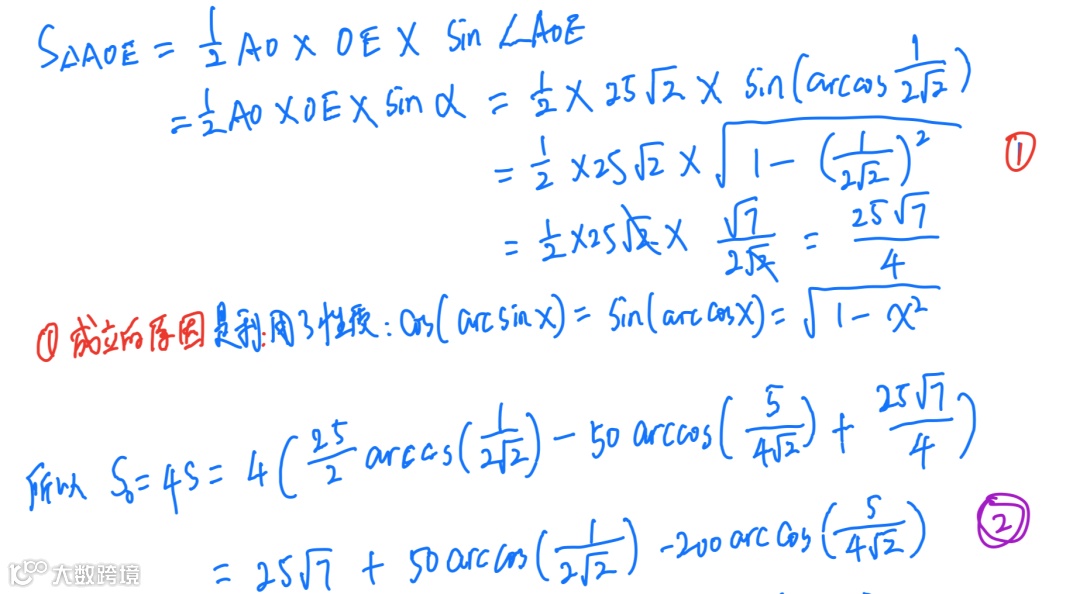 S△AOE = 1/2 AO × OE × sin∠AOE
= 1/2 AO × OE × sin α = 1/2 × 25√2 × sin(arccos 1/(2√2))
= 1/2 × 25√2 × √(1 - (1/(2√2))²) ①
= 1/2 × 25√2 × √7/(2√2) = 25√7/4
① 成立的原因是利用了性质: cos(arcsin x) = sin(arccos x) = √(1 - x²)
所以 S₀ = 4S = 4(25/2 arccos(1/(2√2)) - 50 arccos(5/(4√2)) + 25√7/4)
= 25√7 + 50 arccos(1/(2√2)) - 200 arccos(5/(4√2)) ②
大数跨境